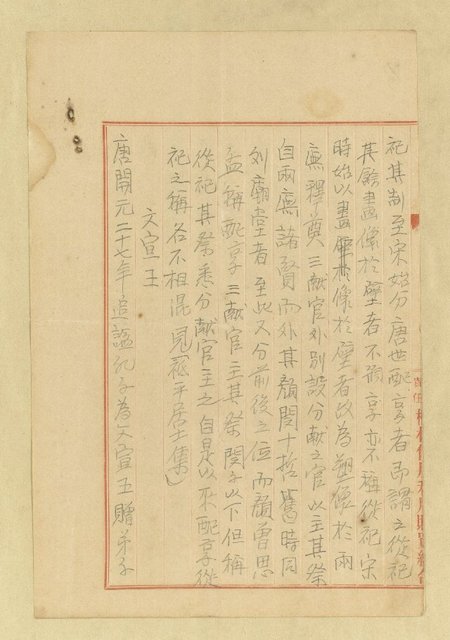 祀其制至宋始分唐世配享者即謂之從祀
其餘畫像於壁者不称享亦不稱從祀宋
時始以畫像於壁者改為塑像於兩
廡釋奠三献官外别設分献之官以主其祭
自兩廡諸賢而外其顏閔十哲舊時同
列廟堂者至此又分前後之位而顏曾思
孟稱配享三献官主其祭閔子以下但稱
從祀其祭悉分献官主之自是以來配享從
祀之稱各不相混見平居士集
文宣王
唐開元二十七年追謚孔子為文宣王贈弟子